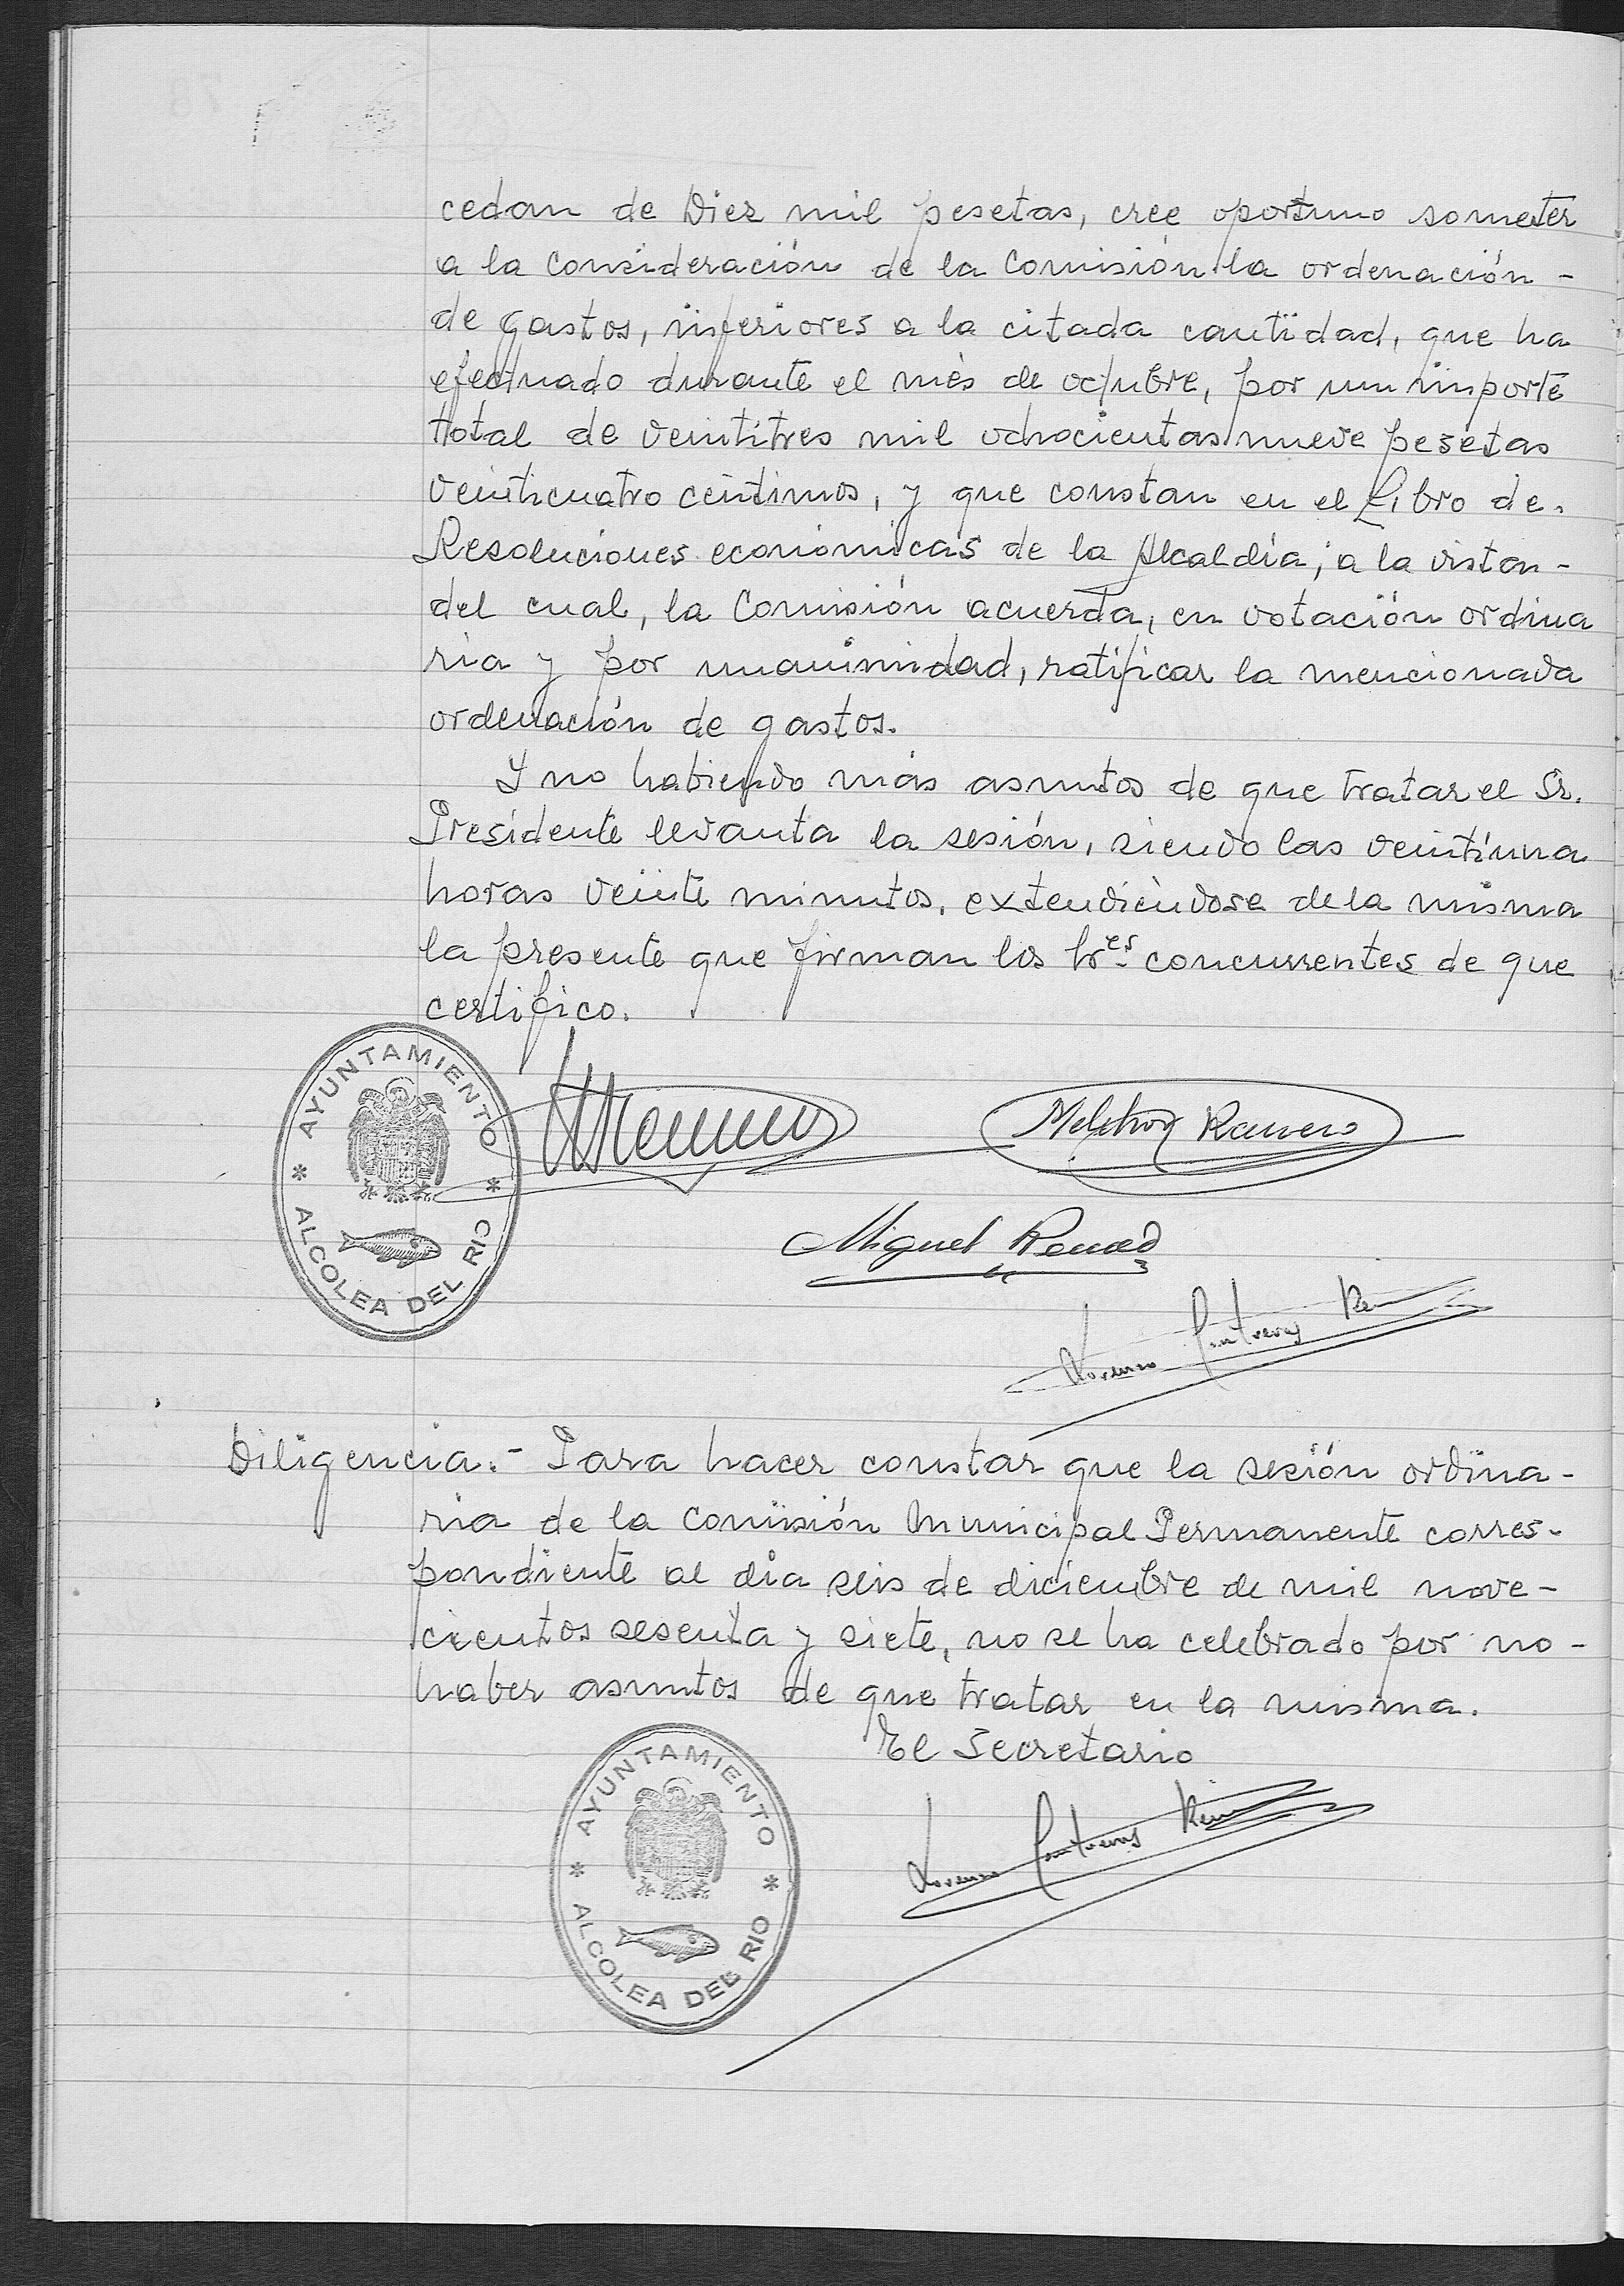 cedan de Diez mil pesetas, cree oportuno someter
a la consideración de la Comisión la ordenación -
de gastos, inferiores a la citada cantidad, que ha
efectuado durante el mes de octubre, por un importe
total de veintitres mil ochocientas nueve pesetas
veinticuatro céntimos, y que constan en el Libro de.
Resoluciones económicas de la Alcaldía; a la vista -
del cual, la Comisión acuerda, en votación ordina
ria y por unanimidad, ratificar la mencionada
ordenación de gastos.
Y no habiendo más asuntos de que tratar el Sr.
Presidente levanta la sesión, siendo las veintiuna
horas veinte minutos, extendiéndose de la misma
la presente que firman los Sres. concurrentes de que
certifico.
AYUNTAMIENTO
* ALCOLEA DEL RIO *
Melchor
Miguel
Lorenzo Contreras
Diligencia.- Para hacer constar que la sesión ordina-
ria de la Comisión Municipal Permanente corres-
pondiente al día seis de diciembre de mil nove-
cientos sesenta y siete, no se ha celebrado por no -
haber asuntos de que tratar en la misma.
El Secretario
AYUNTAMIENTO
* ALCOLEA DEL RIO *
Lorenzo Contreras